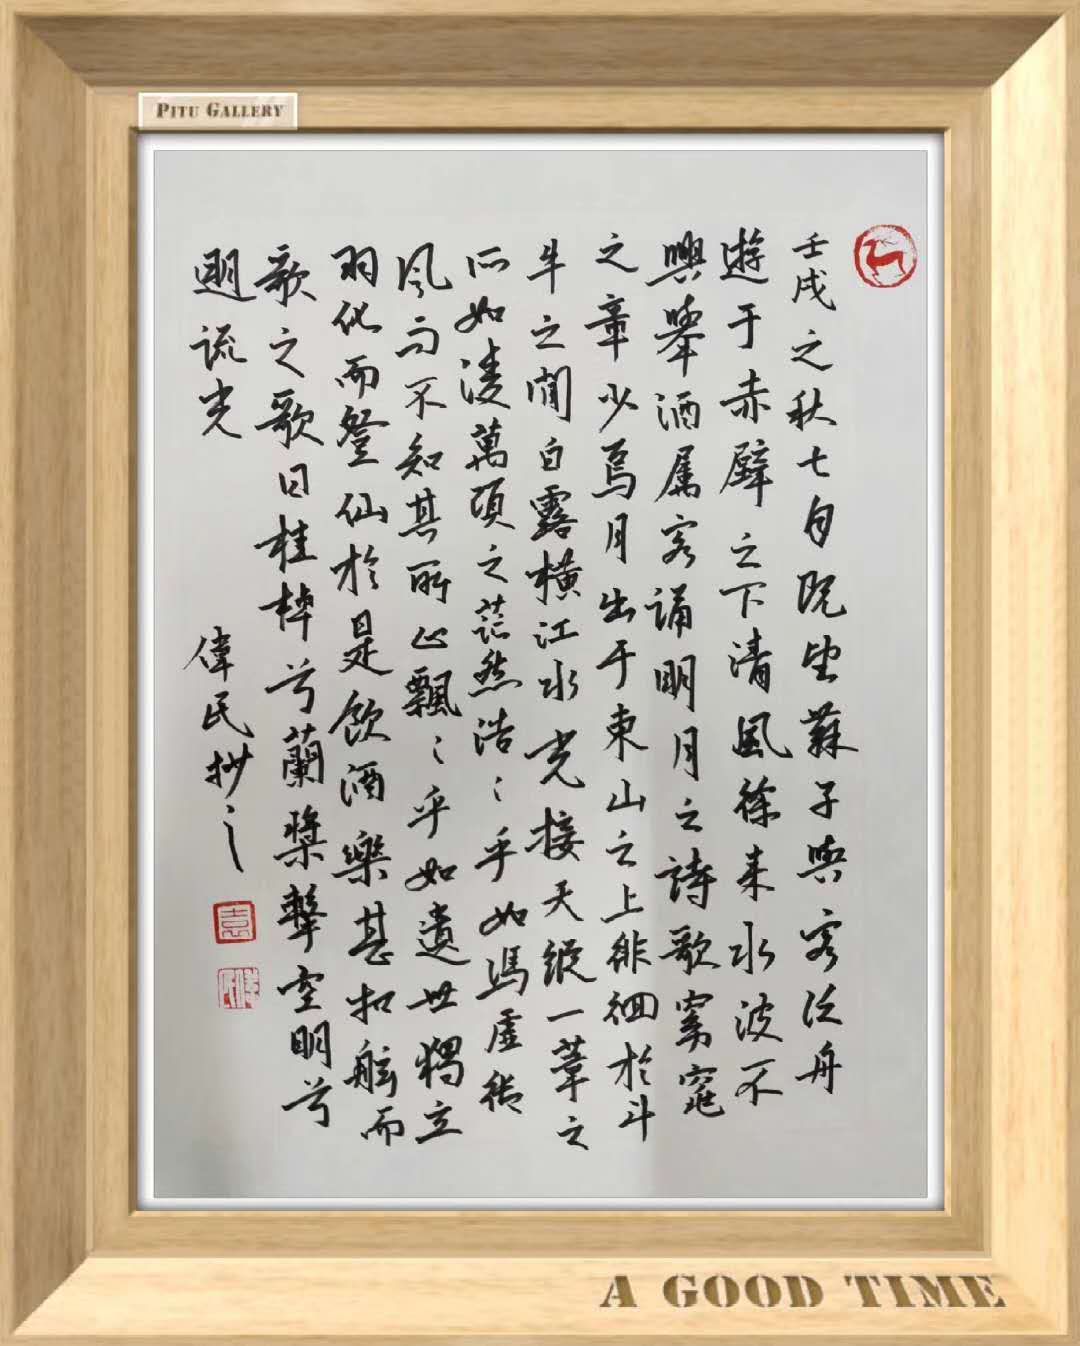 PITU GALLERY
壬戌之秋七月既望蘇子與客泛舟
遊于赤壁之下清風徐来水波不
興舉酒属客誦明月之詩歌窈窕
之章少焉月出于東山之上徘徊於斗
牛之間白露横江水光接天縱一葦之
所如淩萬頃之茫然浩〻乎如馮虛御
風而不知其所止飄〻乎如遺世獨立
羽化而登仙於是飲酒樂甚扣舷而
歌之歌曰桂棹兮蘭槳擊空明兮
遡流光
偉民抄之
袁
A GOOD TIME